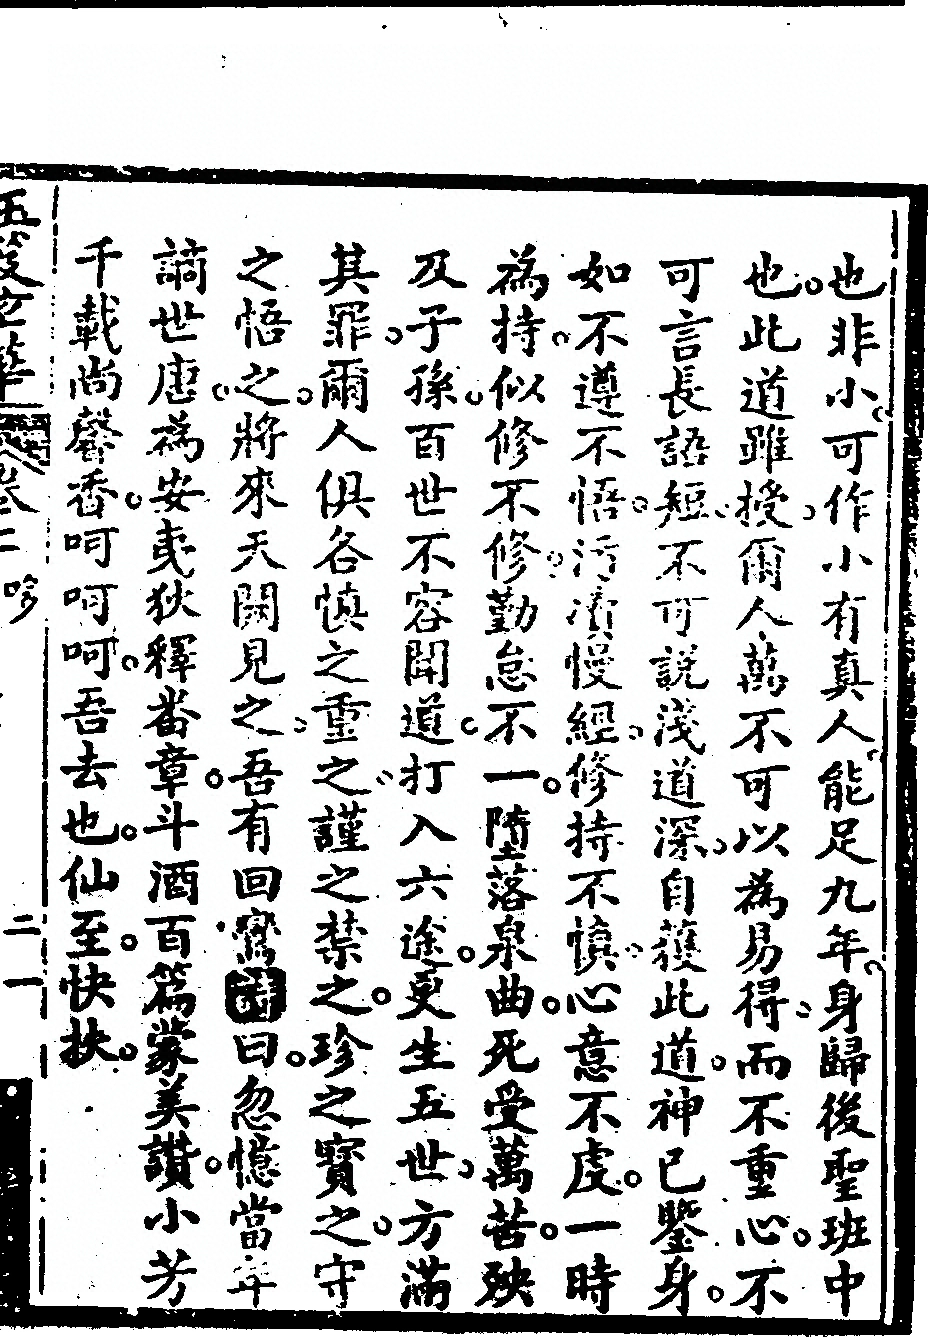 也非小可作小有真人能足九年身歸後聖班中
也此道雖授爾人萬不可以為易得而不重心不
可言長語短不可說淺道深自獲此道神已鑒身
如不遵不悟污瀆慢經修持不慎心意不虔一時
為持似修不修勤怠不一墮落泉曲死受萬苦殃
及子孫百世不容聞道打入六途更生五世方滿
其罪爾人俱各慎之重之謹之禁之珍之寶之守
之悟之將來天闕見之吾有回鸞詩曰忽憶當年
謫世唐為安夷狄釋番章斗酒百篇蒙美讚小芳
千載尚馨香呵呵呵吾去也仙至快抉
玉笈金華
卷二
吟
二一